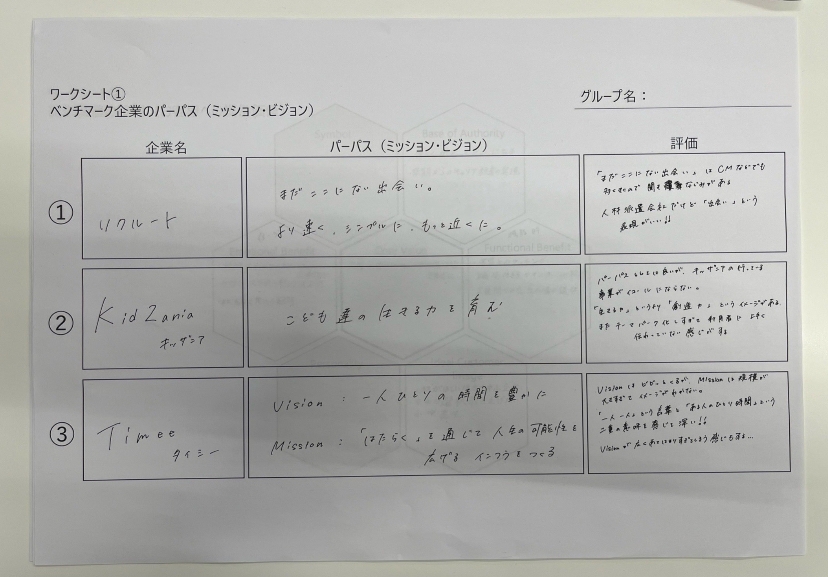 ワークシート①
ベンチマーク企業のパーパス（ミッション・ビジョン）
グループ名：
企業名
パーパス（ミッション・ビジョン）
評価
①
リクルート
まだここにない出会い。
より速く、シンプルに、もっと近くに。
「まだここにない出会い」はCMなどでも
人材派遣会社だけど「出会い」という
表現がいい!!
②
KidZania
キッザニア
こども達の生きる力を育む
パーパスとしては良いが、キッザニアの行っている
事業がイコールにならない。
「生きる力」というより「創造力」というイメージがある
またテーマパーク化しすぎて利用者に上手く
伝わっていない感じがする
③
Timee
タイミー
Vision：一人ひとりの時間を豊かに
Mission：「はたらく」を通じて人生の可能性を
広げるインフラをつくる
VisionはピンとくるがMissionは規模が
大きすぎてイメージがわかない。
「一人一人」という言葉と「ある人のひとり時間」という
二重の意味を感じて深い!!
Visionが広くあてはまりすぎてしまう感じもする…